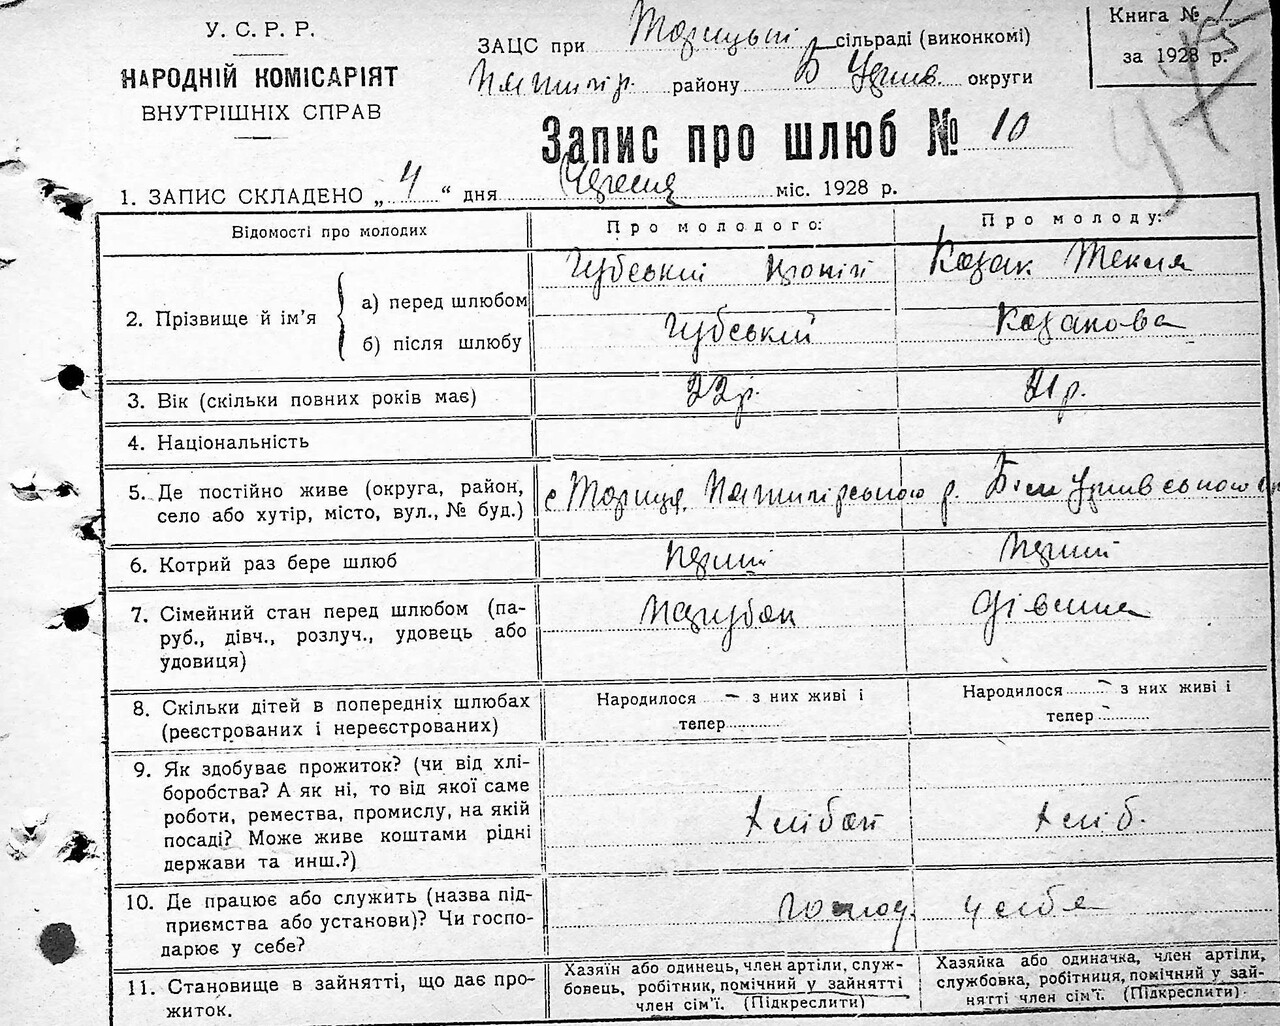 У. С. Р. Р.
НАРОДНІЙ КОМІСАРІЯТ
ВНУТРІШНІХ СПРАВ
ЗАЦС при Торицькій сільраді (виконкомі)
Пятигір. району Б Церків. округи
Книга №
за 1928 р.
Запис про шлюб № 10
1. ЗАПИС СКЛАДЕНО „ 4 “ дня Червня міс. 1928 р.
Відомості про молодих
Про молодого:
Про молоду:
2. Прізвище й ім’я
а) перед шлюбом
Губський
Козак Текля
б) після шлюбу
Губський
Козакова
3. Вік (скільки повних років має)
22 р.
21 р.
4. Національність
5. Де постійно живе (округа, район,
село або хутір, місто, вул., № буд.)
с Ториця, Пятигірського р. Біло Церківського
6. Котрий раз бере шлюб
Перший
Перший
7. Сімейний стан перед шлюбом (па-
руб., дівч., розлуч., удовець або
удовиця)
Парубок
Дівчина
8. Скільки дітей в попередніх шлюбах
(реєстрованих і нереєстрованих)
Народилося – з них живі і
тепер
Народилося – з них живі і
тепер –
9. Як здобуває прожиток? (чи від хлі-
боробства? А як ні, то від якої саме
роботи, ремества, промислу, на якій
посаді? Може живе коштами рідні
держави та инш.?)
хліб.
10. Де працює або служить (назва під-
приємства або установи)? Чи госпо-
дарює у себе?
у себе
11. Становище в зайнятті, що дає про-
житок.
Хазяїн або одинець, член артіли, служ-
бовець, робітник, помічний у зайнятті
член сім’ї. (Підкреслити)
Хазяйка або одиначка, член артіли,
службовка, робітниця, помічний у зай-
нятті член сім’ї. (Підкреслити)